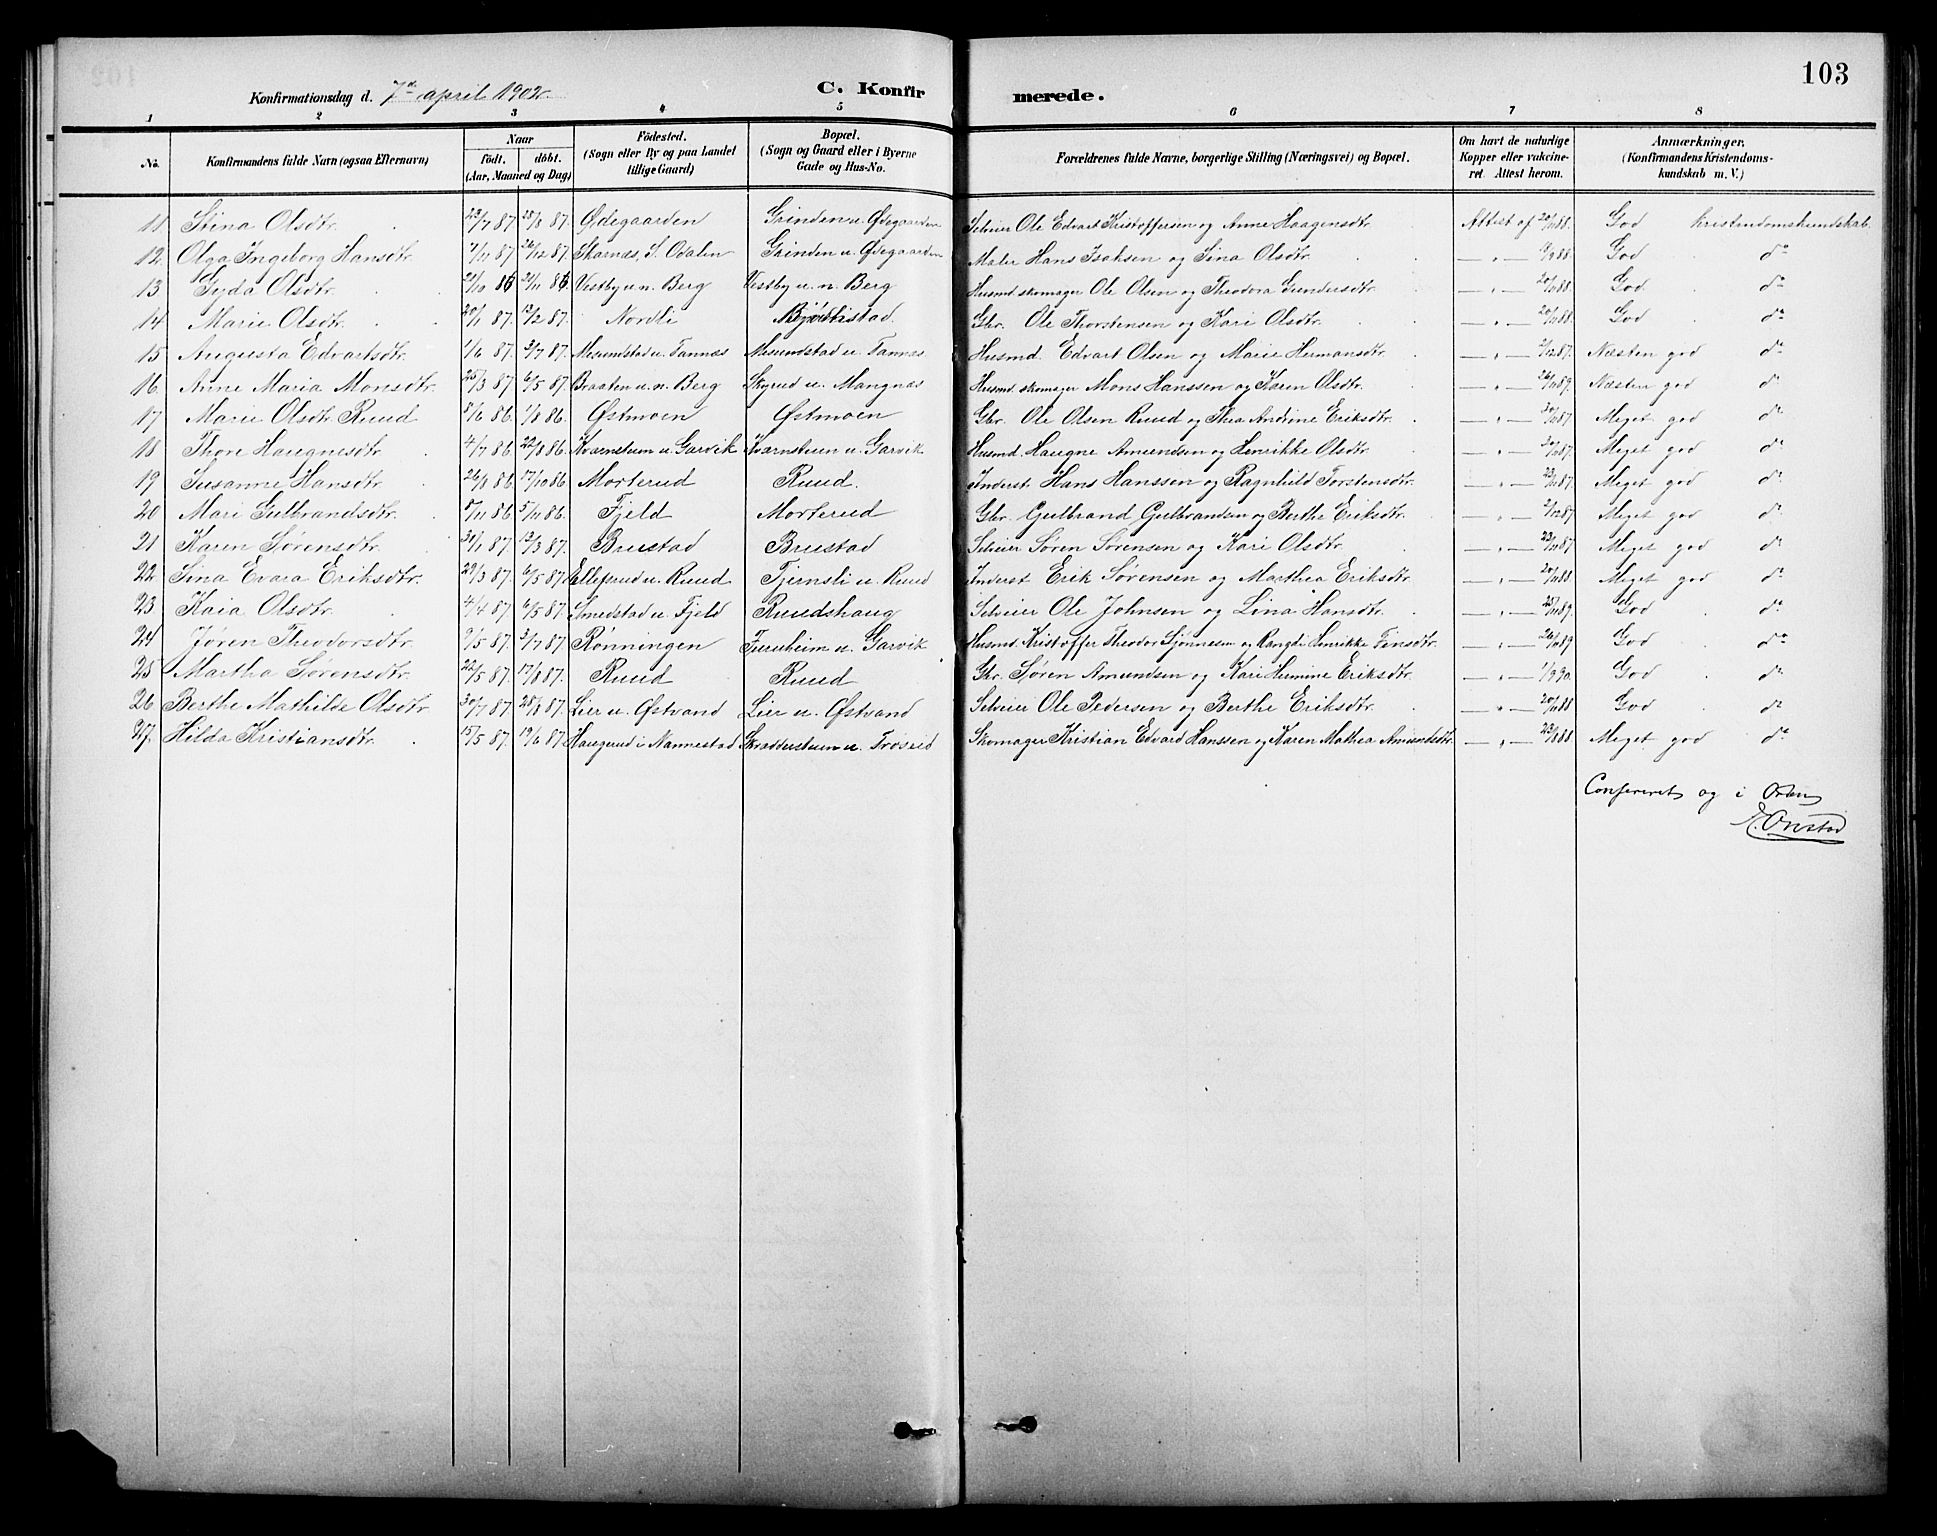 103
Konfirmationsdag d. 7de april 1902.
C. Konfirmerede.
1 2 3 4 5 6 7 8
No. Konfirmandens fulde Navn (ogsaa Efternavn) Naar født, døbt. (Aar, Maaned og Dag) Födested. (Sogn eller By og paa Landet tillige Gaard) Bopæl. (Sogn og Gaard eller i Byerne Gade og Hus-No. Forældrenes fulde Navne, borgerlige Stilling (Næringsvei) og Bopæl. Om havt de naturlige Kopper eller vakcineret. Attest herom. Anmærkninger. (Konfirmandens Kristendomskundskab m. V.)
11 Stina Olsdtr. 23/7 87. 28/8 87. Ødegaarden Grinden u. Ødegaarden Selveier Ole Edvart Kristoffersen og Anne Haagensdtr. Attest af God Kristendomskundskab
12. Olga Ingeborg Hansdtr. 7/11 87 26/12 87. Skarnæs, S. Odalen Grinden u. Ødegaarden Maler Hans Isaksen og Sina Olsdtr. — " — God do
13. Gyda Olsdtr. 21/10 86 21/11 86 Vestby u. n. Berg Vestby u. n. Berg Husmd. skomager Ole Olsen og Theodora Gundersdtr. — " — God. do
14 Marie Olsdtr. 20/1 87. 13/2 87. Nordli Gbr. Ole Thorstensen og Kari Olsdtr. — " — God do
15 Augusta Edvartsdtr. 1/6 87. 3/7 87. Mesundstad u. Tannæs Mesundstad u. Tannæs Husmd. Edvart Olsen og Marie Hermansdtr. — " — Næsten god do
16. Anne Maria Monsdtr. 25/3 87 6/5 87. Braaten u. n. Berg Skyrud u. Mangnæs Husmd. skomager Mons Hanssen og Karen Olsdtr. — " — Næsten god do
17 Marie Olsdtr. Ruud 5/6 86. 1/8 86. Østmoen Østmoen Gbr. Ole Olsen Ruud og Thea Andrine Eriksdtr. — " — Meget god do
18 Thore Haugnesdtr. 4/7 86. 22/8 86. Kvarnstuen u. Garvik Kvarnstuen u. Garvik Husmd. Haugne Amundsen og Henrikke Olsdtr. — " — Meget god do
19 Susanne Hansdtr. 26/8 86. 17/10 86 Morterud Ruud. Inderst. Hans Hanssen og Ragnhild Torstensdtr. — " — Meget god do
20 Mari Gulbrandsdtr. Fjeld Morterud Gbr. Gulbrand Gulbrandsen og Berthe Eriksdtr. — " — Meget god do
21 Karen Sørensdtr. 30/1 87. 13/3 87. Brustad Brustad Selveier Søren Sørensen og Kari Olsdtr. — " — Meget god do
22. Sina Evara Eriksdtr. 29/3 87. 6/5 87. Ellefrud u. Ruud Tjernsli u. Ruud Inderst. Erik Sørensen og Marthea Eriksdtr. — " — Meget god do
23 Kaia Olsdtr. 4/4 87. 6/5 87. Smedstad u. Fjeld Ruudshaug Selveier Ole Johnsen og Lina Hansdtr. — " — God do
24 Jøren Theodorsdtr. 9/5 87. 3/7 87. Rønningen Furuheim u. Garvik Husmd. Kristoffer Theodor Sjønnesen og Rangdi Henrikke Finsdtr. — " — God do
25 Martha Sørensdtr. 22/5 87. 17/8 87. Ruud Ruud Gbr. Søren Amundsen og Kari Hermine Eriksdtr. — " — 1/9 90. God do
26 Berthe Mathilde Olsdtr. 30/7 87. 28/8 87. Lier u. Østvand Lier u. Østvand Selveier Ole Pedersen og Berthe Eriksdtr. — " — God do
27. Hilda Kristiansdtr. 15/5 87. 19/6 87. Haugerud i Nannestad Skrædderstuen u. Frøsrid Skomager Kristian Edvard Hanssen og Karen Mathea Amundsdtr. — " — Meget god do
Confereret og i Orden
E. Onstad